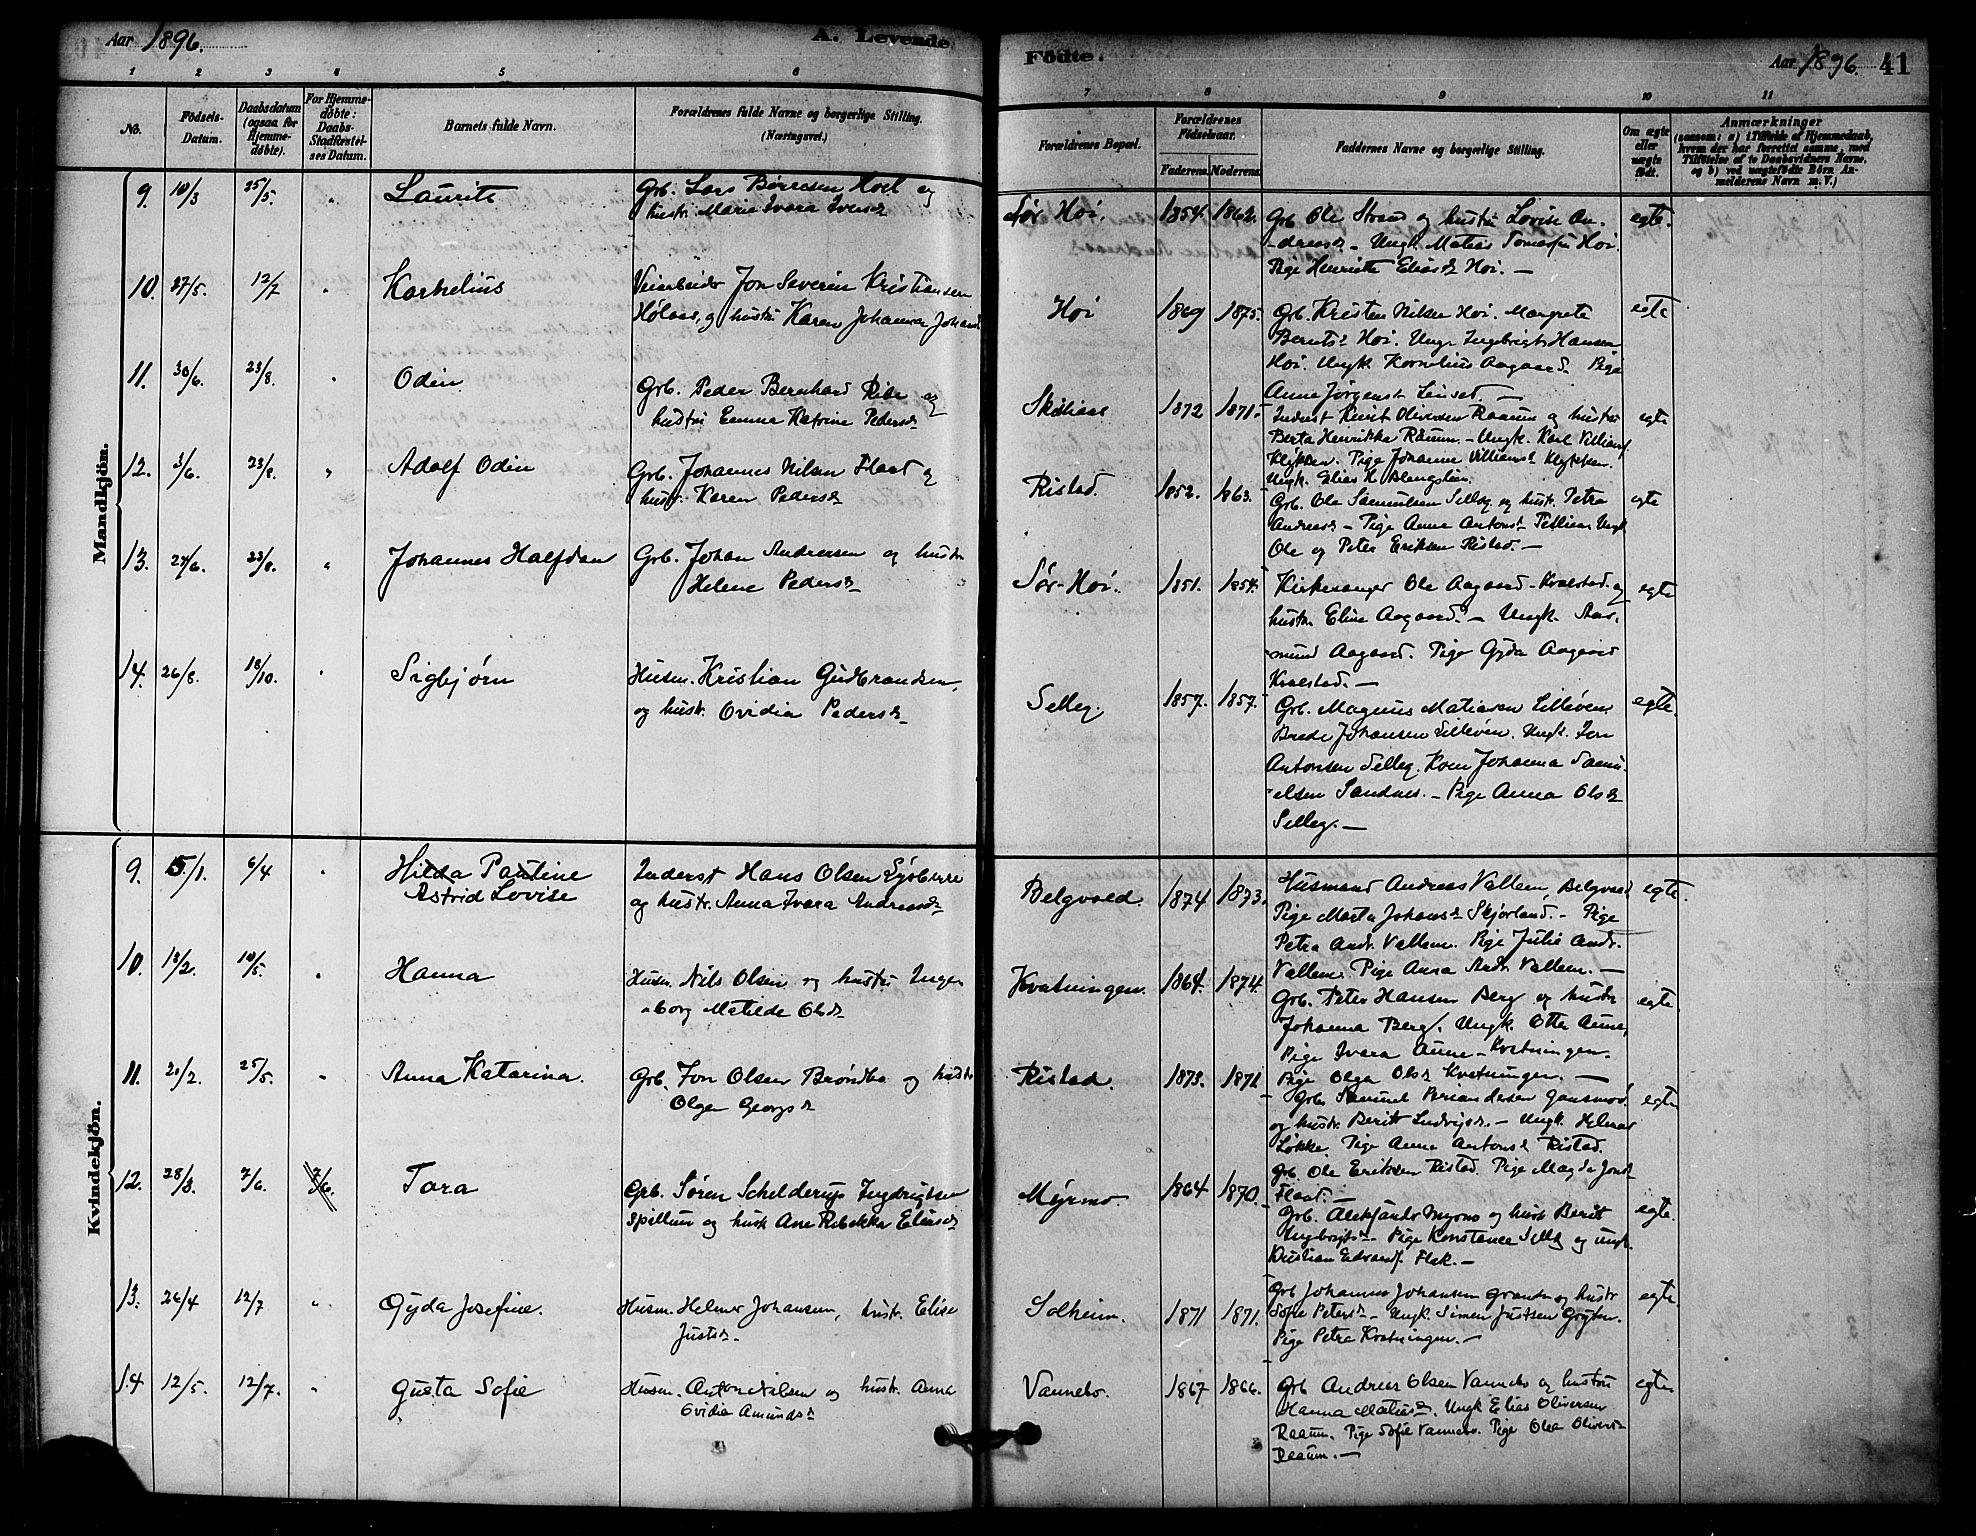 Aar 1896.
A. Levende
Födte.
Aar 1896. 41
1 2 3 4 5 6
7 8 9 10 11
No.
Födsels-
Datum.
Daabsdatum
(ogsaa for
Hjemme-
döbte).
For Hjemme-
döbte:
Daabs-
Stadfæstel-
ses Datum.
Barnets fulde Navn.
Forældrenes fulde Navne og borgerlige Stilling.
(Næringsvei.)
Forældrenes Bopæl.
Forældrenes
Födselsaar.
Faderens. Moderens.
Faddernes Navne og borgerlige Stilling.
Om ægte
eller
uægte
födt.
Anmærkninger
(saasom: a) i Tilfælde af Hjemmedaab,
hvem der har forrettet samme, med
Tilföielse af to Daabsvidners Navne,
og b) ved uægtefödte Börn An-
melderens Navn m. V.)
Mandkjön.
9. 10/3 25/5. " Laurits
Grb. Lars Börresen Hoel og
hustr. Marie Ivara Iversd
Sör Höi. 1854. 1862.
Grb. Ole Strand og hustru Lovise An-
dreasd. - Ungk. Matias Tomesen Höi.
Pige Henriette Eliasd Höi. —
egte.
10. 27/5. 12/7 " Kornelius
Veiarbeider Jon Severin Kristiansen
Hölaas, og hustru Karen Johanna Johansd
Höi 1869 1875.
Grb. Kristen Nilsen Höi. Margrete
Berntsd Höi. Ungk Ingebrigt Hansen
Höi. Ungk. Kornelius Aagaard. Pige
Anne Jörgensd Linset. —
egte
11. 30/6. 23/8. " Odin
Grb. Peder Bernhard Ribe og
hustru Emma Katrine Pedersd
1872 1871.
Inderst Kurit Oliversen Raaum og hustru
Berta Henrikke Raaum. - Ungk. Karl Villiams
Klykken. Pige Johanne Villiamsd Klykken.
Ungk. Elias K. Blengslien.
egte
12. 3/6. 23/8. " Adolf Odin
Grb. Johannes Nilsen Flaat og
hustr. Karen Pedersd
Ristad. 1852. 1863.
Grb. Ole Samuelsen Selleg og hustr. Petra
Andreasd - Pige Anne Antonsd Ungk
Ole og Peter Eriksen Ristad. —
egte
13. 24/6. 23/8. " Johannes Halfdan
Grb. Johan Andersen og hustr.
Helene Pedersd
Sör-Höi. 1851. 1854.
Kirkesanger Ole Aagaard - Kvalstad og
hustr. Eline Aagaard. - Ungk. Aas-
mund Aagaard. Pige Gyda Aagaard
Kvalstad. —
egte
14. 26/8. 18/10. " Sigbjörn
Husm. Kristian Gudbrandsen,
og hustr. Ovidia Pedersd
Selleg. 1857. 1857.
Grb. Magnus Matiasen Lilleöen.
Brede Johansen Lilleöen. Ungk. Jon
Antonsen Selleg. Kone Johanna Samu-
elsen Sandnes. - Pige Anna Olsd
Selleg. —
egte.
Kvindekjön.
9. 5/1. 6/4 " Hilda Pauline
Astrid Lovise
Inderst Hans Olsen
og hustr. Anna Ivara Andreasd
Belgvold. 1874 1873.
Husmand Andreas Vallem, Belgvold
Pige Marta Johansd Skjörland. - Pige
Petra Andr. Vallem. Pige Julie Andr.
Vallem. Pige Anna Andr. Vallem. —
egte.
10. 13/2. 10/5. " Hanna
Husm. Nils Olsen og hustru Inge-
borg Matilde Olsd
Kvatningen. 1864. 1874.
Grb. Peter Hansen Berg og hustr
Johanna Berg. Ungk. Otte Aune,
Pige Ivara Aune - Kvatningen.
Pige Olga Olsd Kvatningen. —
egte
11. 21/2. 25/5. " Anna Katarina.
Grb. Jon Olsen Bröndbo og hustr
Olga Georgsd
Ristad. 1873. 1871
Grb. Samuel Periandersen Gansmo
og hustr. Berit Ludvigsd. - Ungk. Helmer
Løkke. Pige Anne Antonsd Ristad.
Grb. Ole Eriksen Ristad. Pige Magda Jonsd
Flaat. —
egte
12. 28/3. 7/6. 7/6. Tora
Grb. Sören Schelderup Ingbrigtsen
Spillum og hustr Ane Rebekka Eliasd
Myrmo. 1864 1870.
Grb. Aleksander Myrmo og hustr Berit
Ingebrigtsd. Pige Konstance Selleg og ungk.
Kristian Edvards Flak. —
egte.
13. 26/4 12/7 " Gyda Josefine.
Husm. Helmer Johansen, hustr. Elise
Justsd.
Solheim. 1871 1871.
Grb Johannes Johansen Granden og hustr
Sofie Petersd. - Ungk. Simen Justsen
Pige Petra Kvatningen. —
egte
14 12/5. 12/7. " Gusta Sofie
Husm. Anton Nilsen og hustr. Anna
Ovidia Amundsd
Vannebo. 1867 1866.
Grb Andreas Olsen Vannebo og hustru
Hanna Matiasd. Ungk Elias Oliversen
Raaum. Pige Sofie Vannebo. Pige Olea Oliversd
Raaum. —
egte